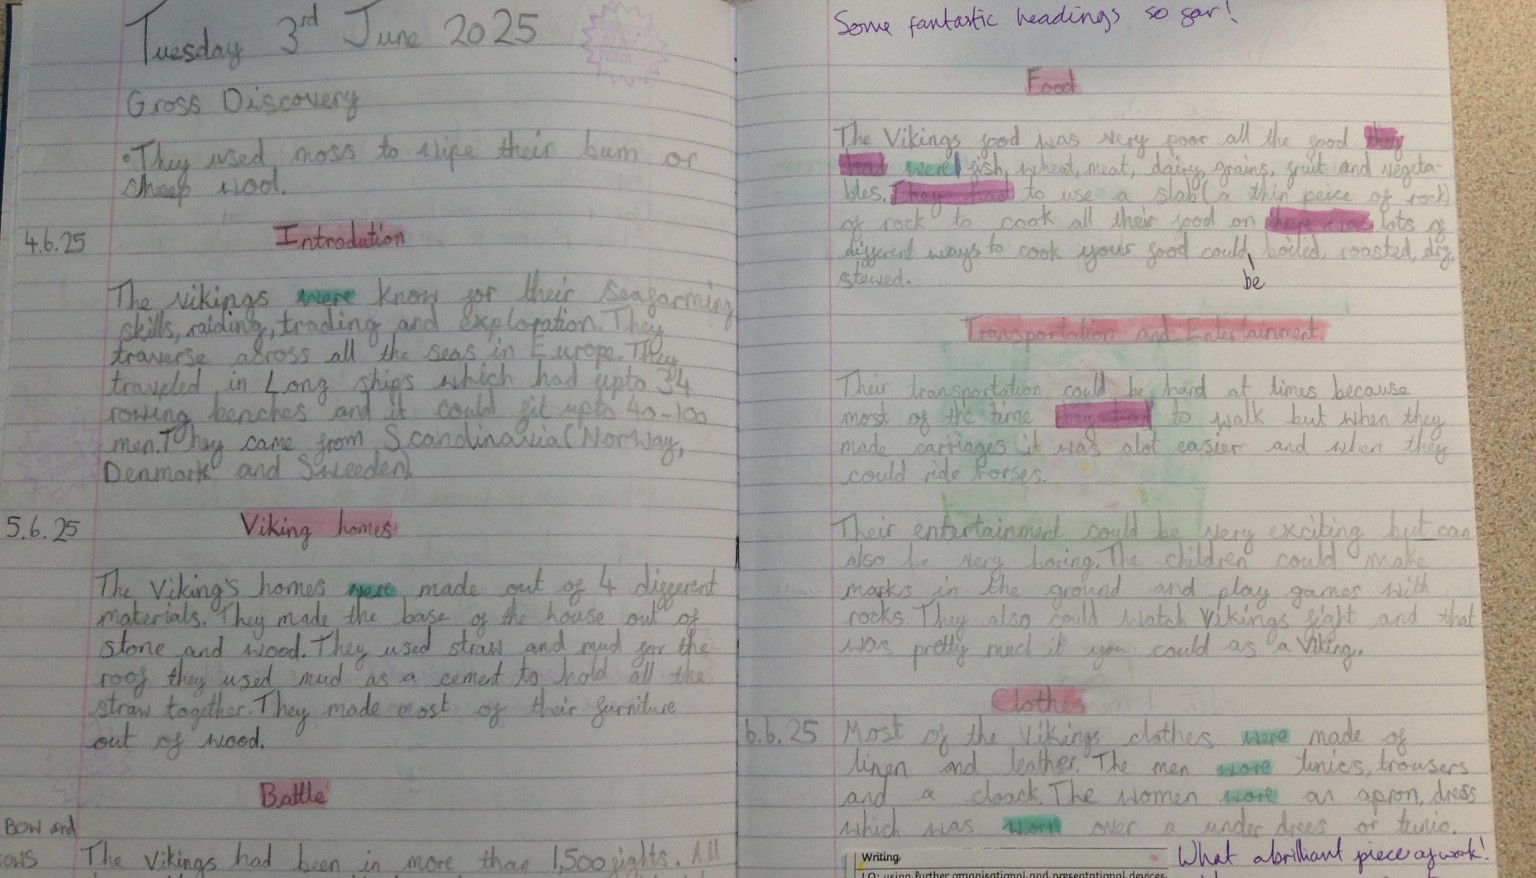 Tuesday 3rd June 2025
Gross Discovery
•They used moss to wipe their bum or
sheep wool.
4.6.25
Introdution
The vikings were know for their seafarming
skills, raiding, trading and exploration. They
traverse across all the seas in Europe. They
traveled in Long ships which had upto 34
rowing benches and it could fit upto 40-100
men. They came from Scandinavia (Norway,
Denmark and Sweeden).
5.6.25
Viking homes
The Viking's homes were made out of 4 different
materials. They made the base of the house out of
stone and wood. They used straw and mud for the
roof they used mud as a cement to hold all the
straw together. They made most of their furniture
out of wood.
Battle
Bow and
ows
The Vikings had been in more than 1,500 fights. All
Some fantastic headings so far!
Food
The Vikings food was very poor all the food they
had were fish, wheat, meat, dairy, grains, fruit and vegeta-
bles. They had to use a slab (a thin peice of rock)
of rock to cook all their food on there was lots of
different ways to cook your food could boiled, roasted, dry,
be
stewed.
Transportation and Entertainment.
Their transportation could be hard at times because
most of the time they had to walk but when they
made carriages it was alot easier and when they
could ride horses.
Their entertainment could be very exciting but can
also be very boring. The children could make
marks in the ground and play games with
rocks They also could watch Vikings fight and that
was pretty much it you could as a Viking.
Clothes
6.6.25
Most of the Vikings clothes were made of
linen and leather. The men wore tunics, trousers
and a cloack. The women wore an apron, dress
which was worn over a under drees or tunic.
Writing
What a brilliant piece of work!
LO: using further organisational and presentational devices